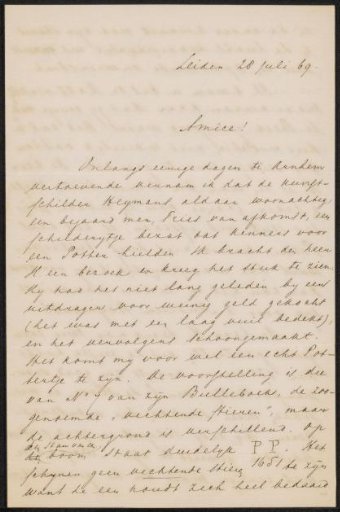 Leiden 28 Juli 69.
Amice!
Onlangs eenige dagen te Arnhem
vertoevende vernam ik dat de kunst-
schilder Heymans aldaar woonachtig
een bejaard man, Fries van afkomst, een
schilderytje bezat dat kenners voor
een Potter hielden. Ik bracht den heer
H een bezoek en kreeg het stuk te zien.
Hy had het niet lang geleden by een
uitdrager voor weinig geld gekocht
(het was met een laag vuil bedekt),
en het vervolgens schoongemaakt.
Het komt my voor wel een echt Pot-
tertje te zyn. De voorstelling is die
van No van zyn Bulleboek, de zoo-
genoemde "vechtende stieren", maar
de achtergrond is verschillend. op
den stam van
boom staat duidelyk P P. Het
1651
schynen geen vechtende stiere te zyn
want de een houdt zich heel bedaard